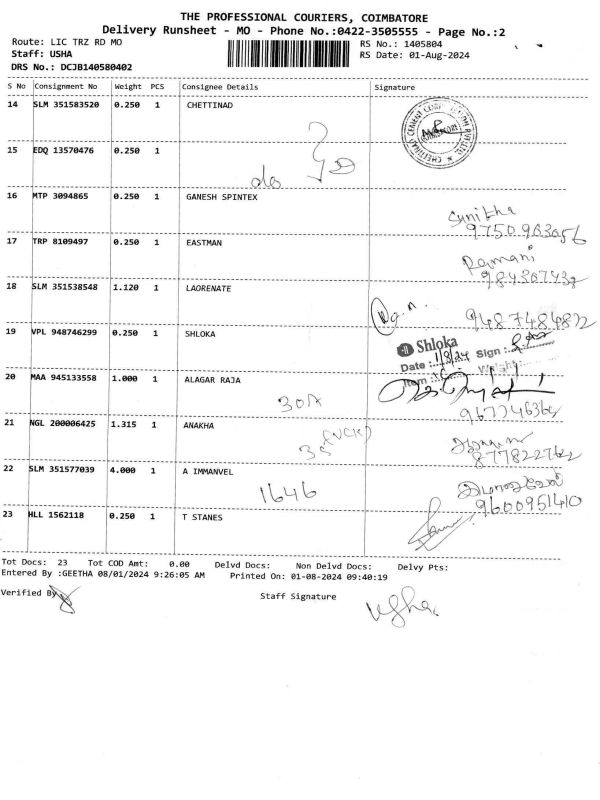 THE PROFESSIONAL COURIERS, COIMBATORE
Delivery Runsheet - MO - Phone No.:0422-3505555 - Page No.:2
Route: LIC TRZ RD MO RS No.: 1405804
Staff: USHA RS Date: 01-Aug-2024
DRS No.: DCJB140580402
S No Consignment No Weight PCS Consignee Details Signature
14 SLM 351583520 0.250 1 CHETTINAD
15 EDQ 13570476 0.250 1
do
16 MTP 3094865 0.250 1 GANESH SPINTEX
Sunitha
9750963656
17 TRP 8109497 0.250 1 EASTMAN
Ramani
18 SLM 351538548 1.120 1 LAORENATE
9487484872
19 VPL 948746299 0.250 1 SHLOKA
Shloka
Date : 1/8/24 Sign :
20 MAA 945133558 1.000 1 ALAGAR RAJA
30A
21 NGL 200006425 1.315 1 ANAKHA
22 SLM 351577039 4.000 1 A IMMANVEL
1646
9600951410
23 HLL 1562118 0.250 1 T STANES
Tot Docs: 23 Tot COD Amt: 0.00 Delvd Docs: Non Delvd Docs: Delvy Pts:
Entered By :GEETHA 08/01/2024 9:26:05 AM Printed On: 01-08-2024 09:40:19
Verified By Staff Signature
Usha